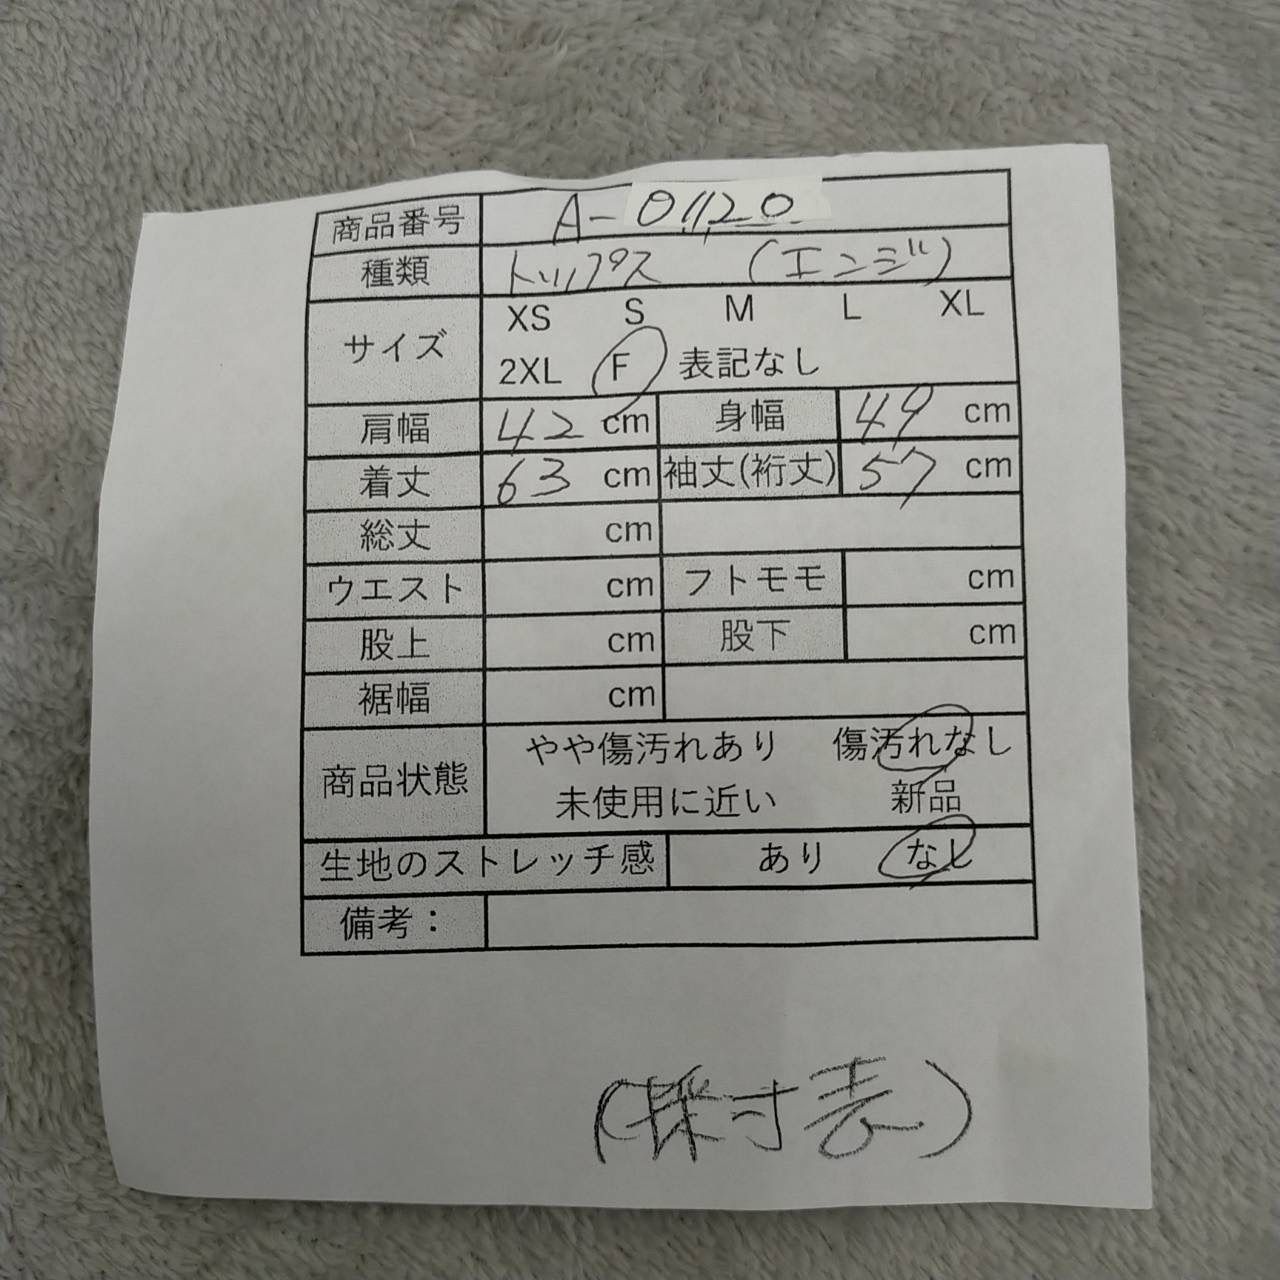 商品番号 A-01120
種類 トップス (エンジ)
サイズ XS S M L XL
2XL F 表記なし
肩幅 42 cm 身幅 49 cm
着丈 63 cm 袖丈(裄丈) 57 cm
総丈 cm
ウエスト cm フトモモ cm
股上 cm 股下 cm
裾幅 cm
商品状態 やや傷汚れあり 傷汚れなし
未使用に近い 新品
生地のストレッチ感 あり なし
備考：
(採寸表)